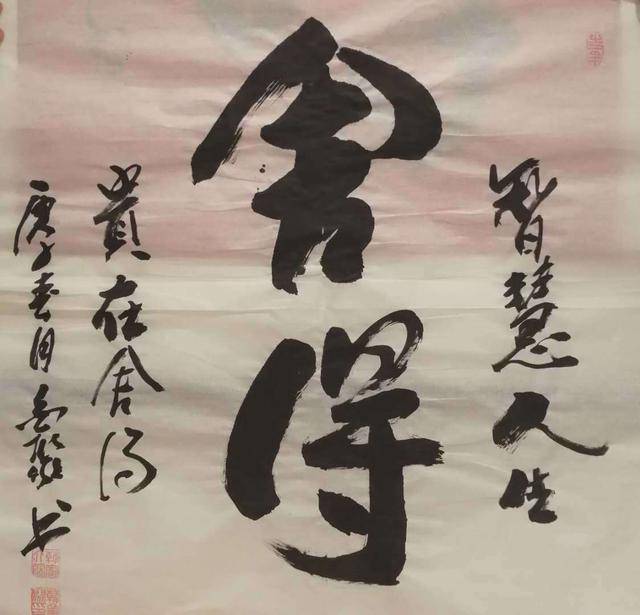 舍得
智慧人生
贵在舍得
庚子春月
书